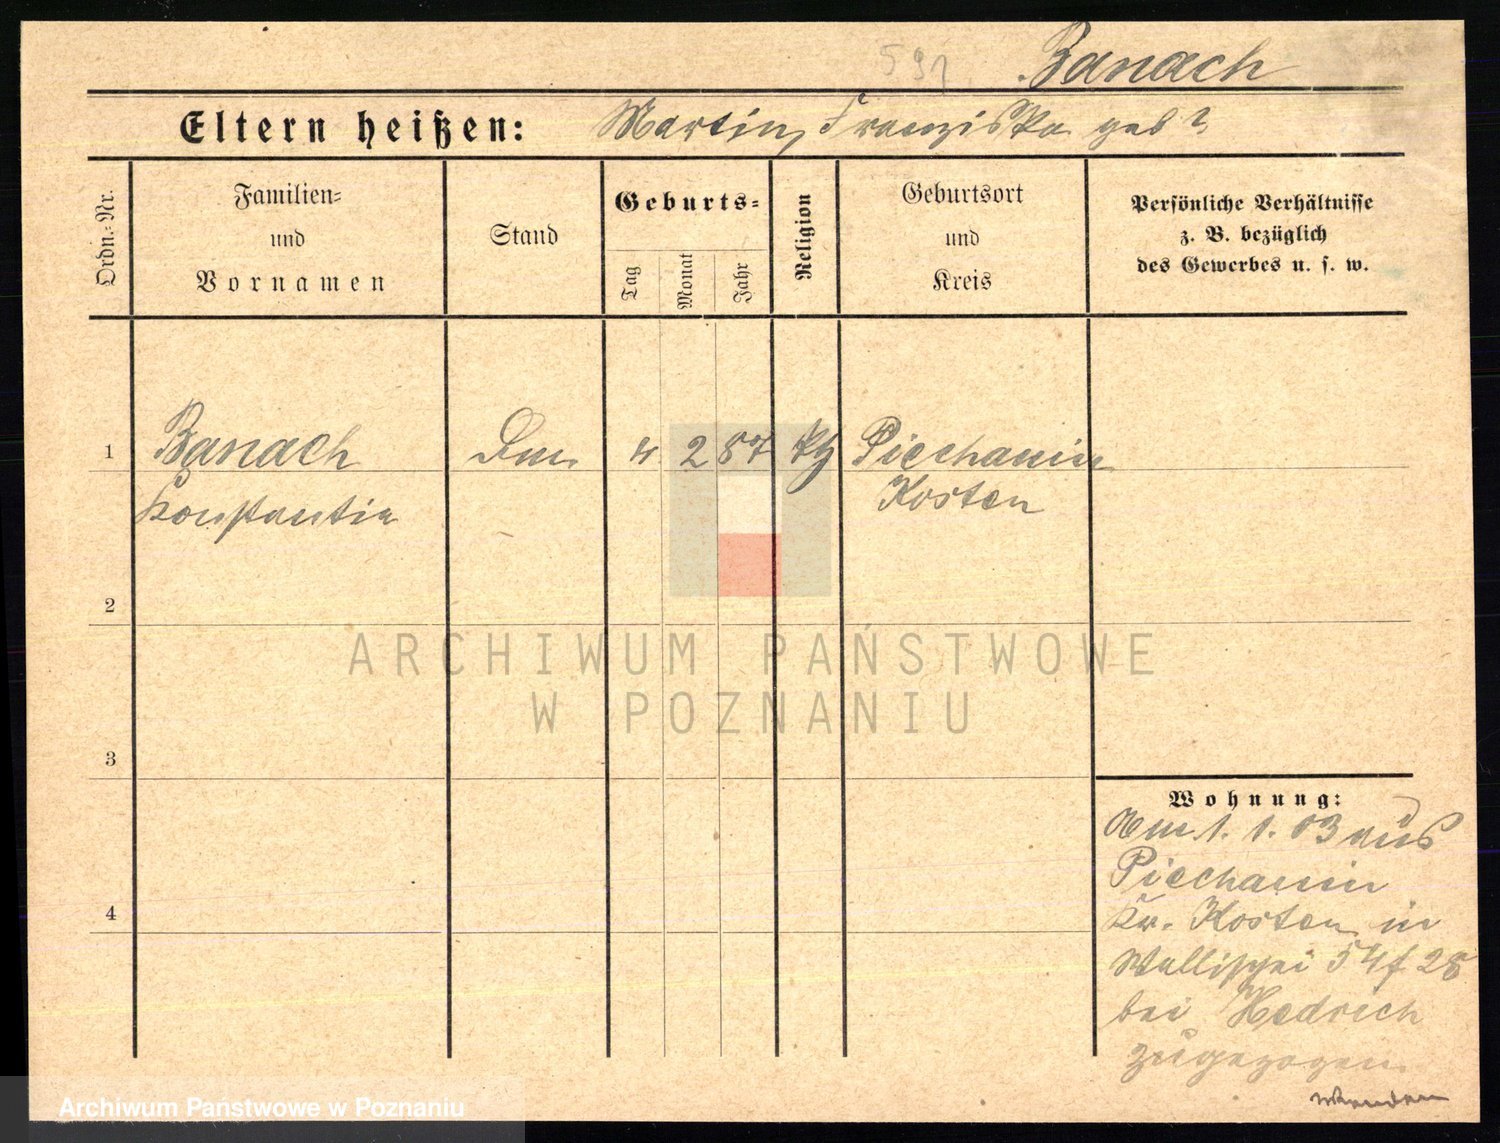 591 Banach
Eltern heißen: Martin, Franziska geb ?
Ordn.-Nr.
Familien-
und
Vornamen
Stand
Geburts-
Tag
Monat
Jahr
Religion
Geburtsort
und
Kreis
Persönliche Verhältnisse
z. B. bezüglich
des Gewerbes u. s. w.
1 Banach 4 2 87 kth Piechanin
Konstantia Kosten
2
3
4
Wohnung:
Am 1. 1. 03 aus
Piechanin
Kr. Kosten in
Wallischei 54 28
bei Hedrich
zugezogen.
wenden
ARCHIWUM PAŃSTWOWE
W POZNANIU
Archiwum Państwowe w Poznaniu